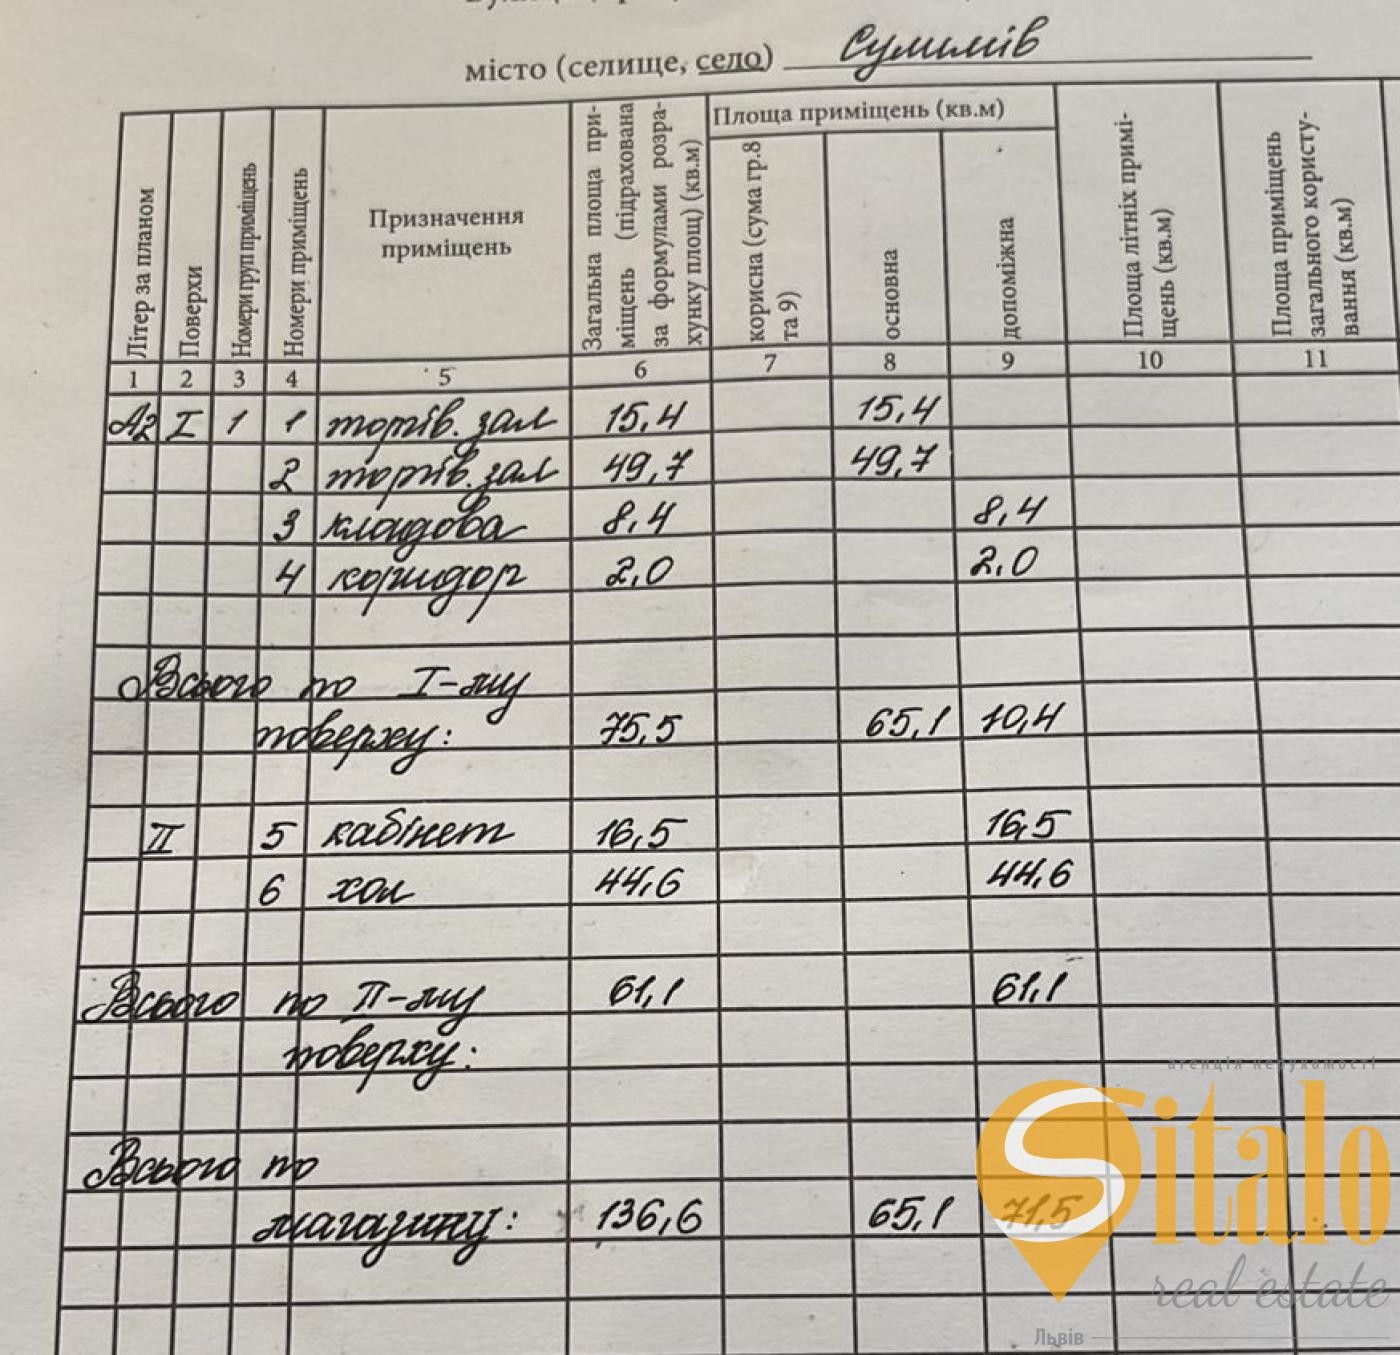 місто (селище, село) Сулимів
Літер за планом
Поверхи
Номери груп приміщень
Номери приміщень
Призначення
приміщень
Загальна площа при-
міщень (підрахована
за формулами розра-
хунку площ) (кв.м)
Площа приміщень (кв.м)
корисна (сума гр.8
та 9)
основна
допоміжна
Площа літніх примі-
щень (кв.м)
Площа приміщень
загального користу-
вання (кв.м)
1 2 3 4 5 6 7 8 9 10 11
А2 I 1 1 торгів. зал 15,4 15,4
2 торгів. зал 49,7 49,7
3 кладова 8,4 8,4
4 коридор 2,0 2,0
Всього по I-му
поверху: 75,5 65,1 10,4
II 5 кабінет 16,5 16,5
6 хол 44,6 44,6
Всього по II-му 61,1 61,1
поверху:
Всього по
магазину: 136,6 65,1 71,5
агенція нерухомості
Sitalo
real estate
Львів